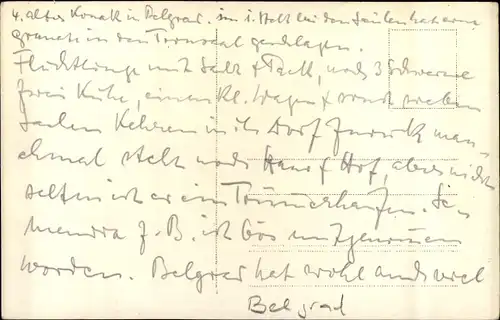 4. alter Konak in Belgrad. im 1. Stock bei den Säulen hat eine
Granate in den Thronsaal geschlagen.
Flüchtlinge mit Sack & Pack, noch 3 Schweine
zwei Kühe, einen kl. Wagen & sonst sieben
Sachen kehren in ihr Dorf zurück man-
chmal steht noch Haus & Hof, aber nicht
selten ist er ein Trümmerhaufen. Se-
mendria z. B. ist bös mitgenommen
worden. Belgrad hat wohl auch viel
Belgrad